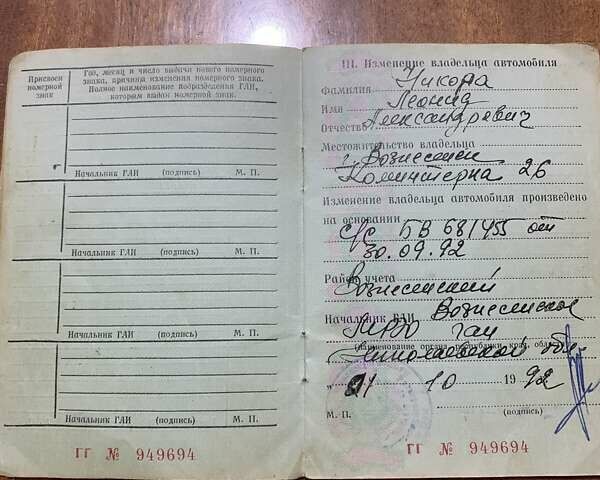 Присвоен номерной знак
Год, месяц и число выдачи нового номерного знака, причина изменения номерного знака. Полное наименование подразделения ГАИ, которым выдан номерной знак.
Начальник ГАИ (подпись) М. П.
Начальник ГАИ (подпись) М. П.
Начальник ГАИ (подпись) М. П.
Начальник ГАИ (подпись) М. П.
ГГ № 949694
III. Изменение владельца автомобиля
Фамилия Никора
Имя Леонид
Отчество Александревич
Местожительство владельца
г. Вознесенск
Коминтерна 26
Изменение владельца автомобиля произведено
на основании
с/с БВ 681455 от
30.09.92
Район учета
Вознесенский
Начальник ГАИ Вознесенское
МРЭО ГАИ
(наименование органа, республики, края, области)
Николаевской обл.
" 21 " 10 1992
М. П. (подпись)
ГГ № 949694